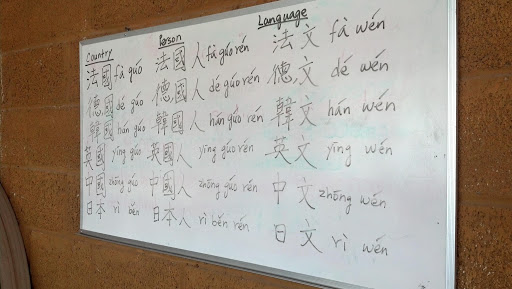 Country Person Language
法國 fà guó 法國人 fà guó rén 法文 fà wén
德國 dé guó 德國人 dé guó rén 德文 dé wén
韓國 hán guó 韓國人 hán guó rén 韓文 hán wén
英國 yīng guó 英國人 yīng guó rén 英文 yīng wén
中國 zhōng guó 中國人 zhōng guó rén 中文 zhōng wén
日本 rì běn 日本人 rì běn rén 日文 rì wén